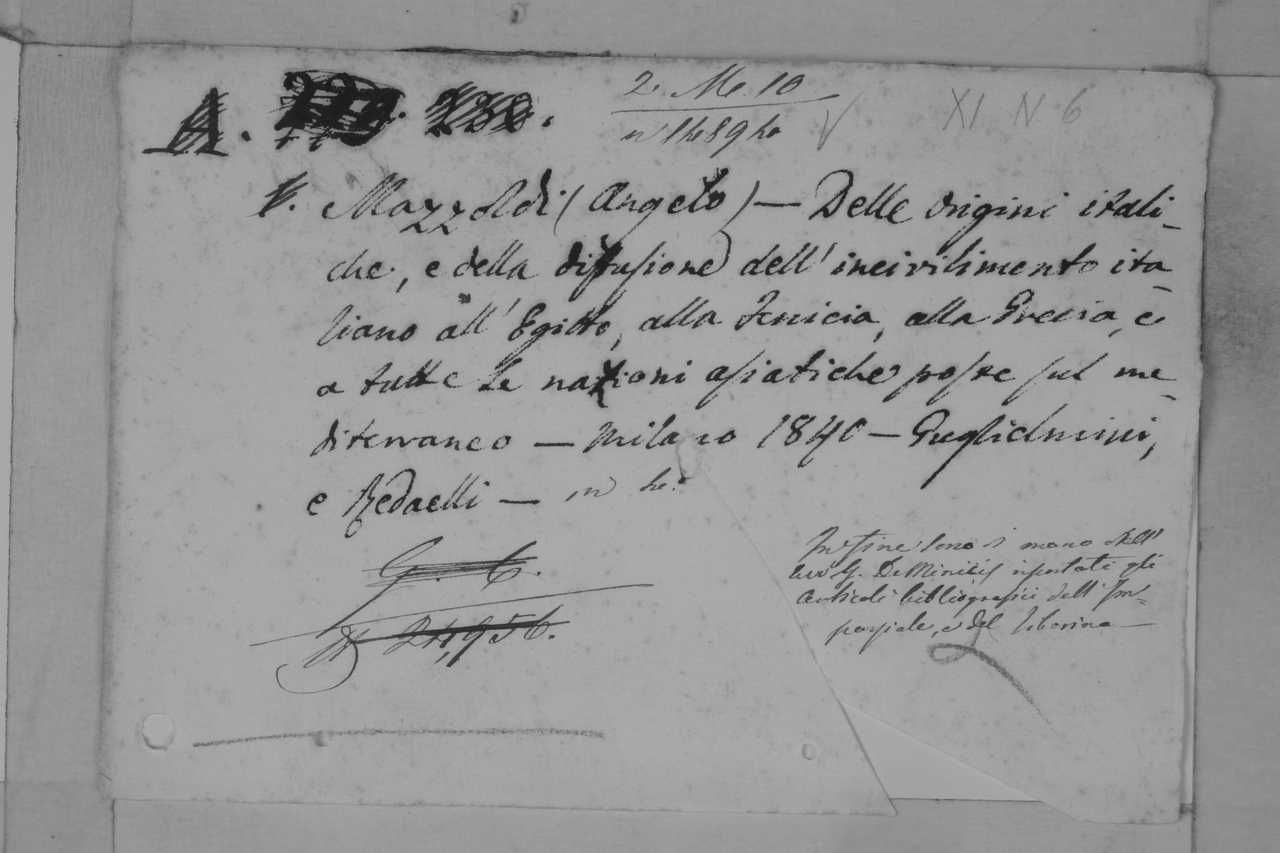 A.
2. Me. 10
XI N 6
Mazzoldi (Angelo) — Delle Origini itali-
che, e della diffusione dell' incivilimento ita-
liano all' Egitto, alla Fenicia, alla Grecia, e
a tutte le nazioni asiatiche poste sul me-
diterraneo — Milano 1840 — Guglielmini,
e Redaelli — in
G. C.
24,956.
In fine sono di mano dell'
G. De Minicis riportati gli
articoli bibliografici dell' Im-
parziale, e del Tiberino —